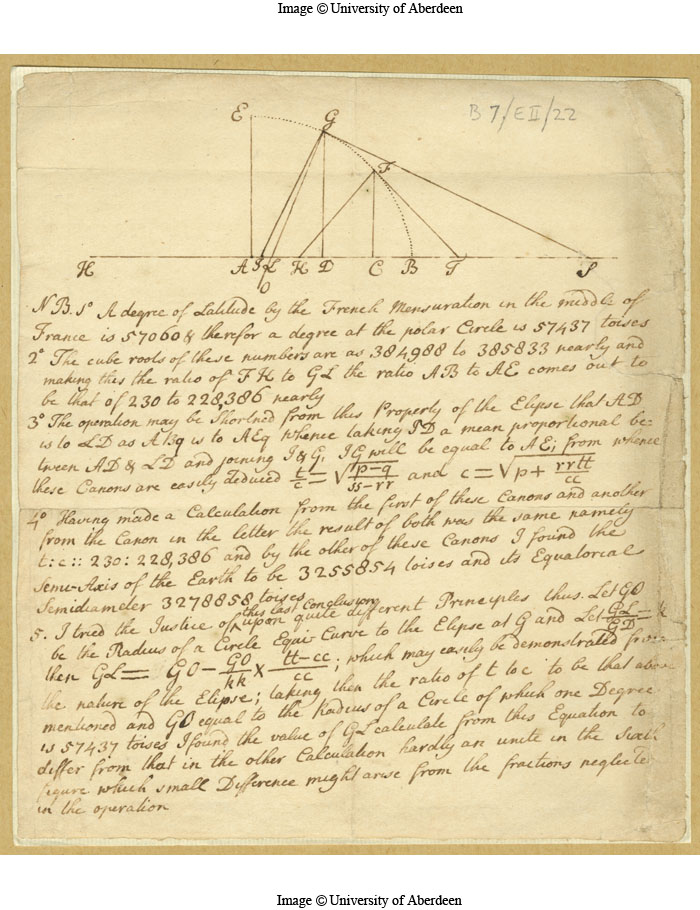 Image © University of Aberdeen
B 7/EII/22
E G F
H A I L K D C B T S
O
N.B. 1º A degree of Latitude by the French Mensuration in the middle of
France is 57060 & therefor a degree at the polar Circle is 57437 toises
2º The cube roots of these numbers are as 384988 to 385833 nearly and
making this the ratio of FK to GL the ratio AB to AE comes out to
be that of 230 to 228,386 nearly
3º The operation may be Shortned from this Property of the Elipse that AD
is to LD as ABq is to AEq whence taking ID a mean proportional be-
tween AD & LD and joining I & G, IG will be equal to AE; from whence
these Canons are easily deduced t/c = √(p-q)/(ss-rr) and c = √p + rrtt/cc
4º Having made a Calculation from the first of these Canons and another
from the Canon in the letter the result of both was the same namely
t : c :: 230 : 228,386 and by the other of these Canons I found the
Semi-Axis of the Earth to be 3255854 toises and its Equatorial
Semidiameter 3278858 toises
5. I tried the Justice of this last Conclusion upon quite different Principles thus. Let GO
be the Radius of a Circle Equi-Curve to the Elipse at G and Let GL/GD = k
then GL = GO - GO/kk × tt-cc/cc; which may easily be demonstrated from
the nature of the Elipse; taking then the ratio of t to c to be that above
mentioned and GO equal to the Radius of a Circle of which one Degree
is 57437 toises I found the value of GL calculate from this Equation to
differ from that in the other Calculation hardly an unite in the Sixth
figure which small Difference might arise from the fractions neglected
in the operation
Image © University of Aberdeen